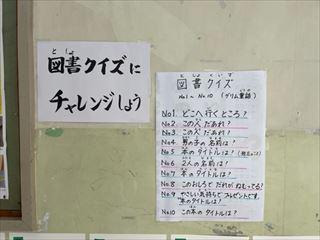 としょ
図書クイズに
チャレンジしよう
としょ くいず
図書クイズ
No1～No10 (グリム童話)
No1. どこへ行くところ?
No2. この人だあれ?
No3. この人だあれ?
No4. 男の子の名前は?
No5. 本のタイトルは?
No6. 2人の名前は?
No7. 本のタイトルは?
No8 このおしろでだれがねむってる?
No9 やさしい気持ちでプレゼントです
本のタイトルは?
No10 この本のタイトルは?